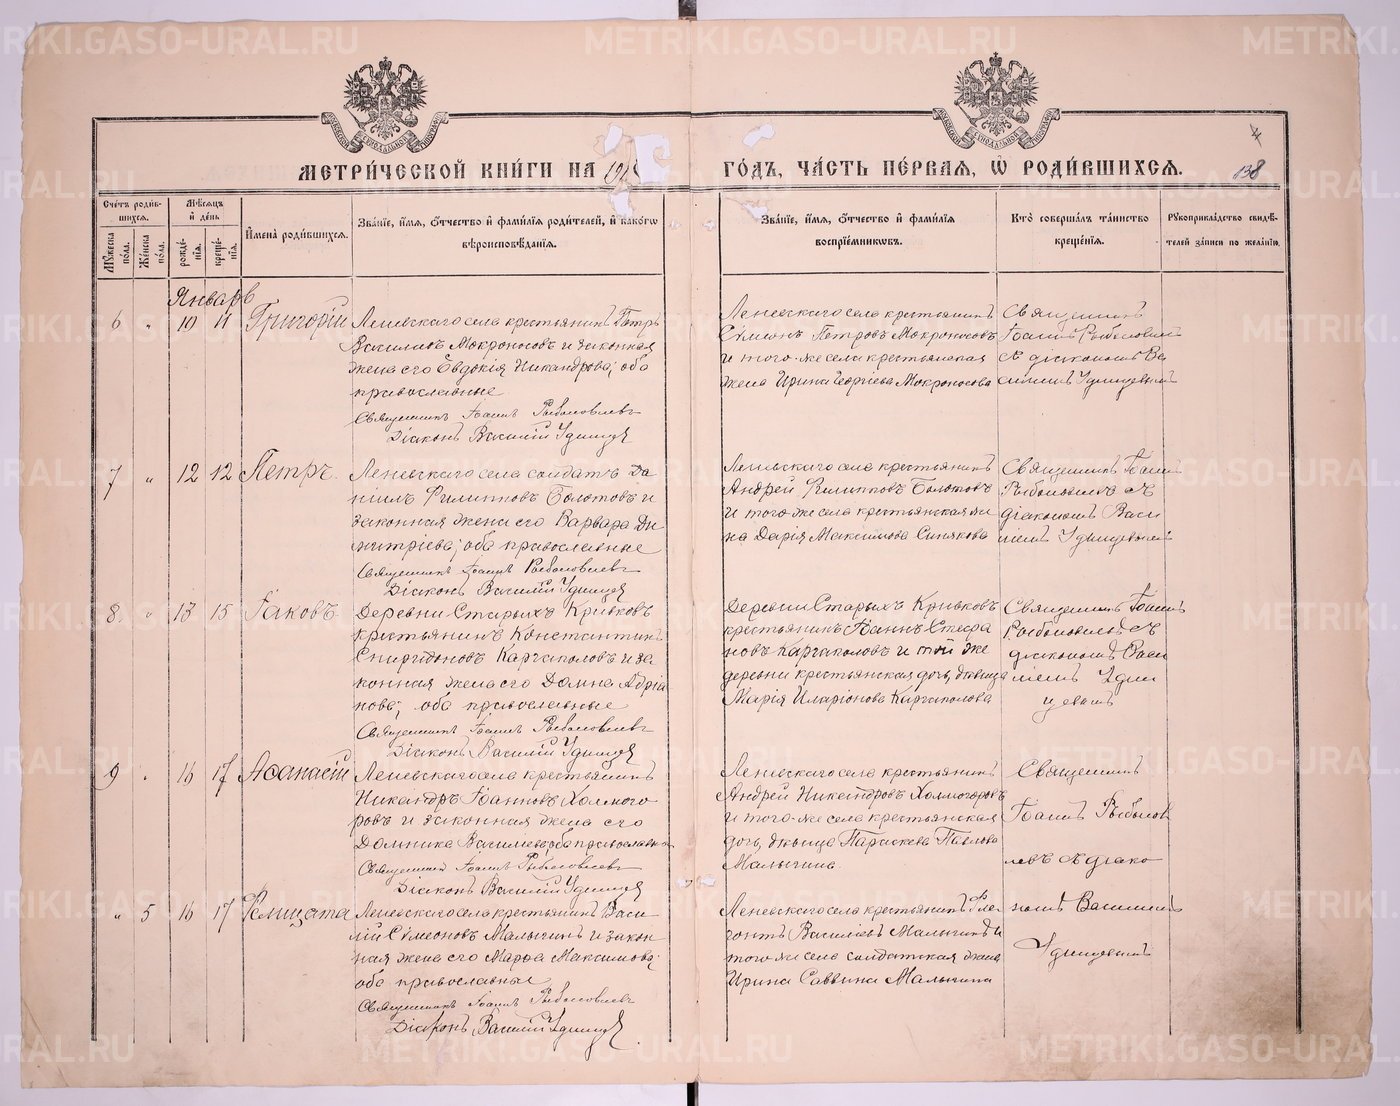 METRIKI.GASO-URAL.RU
МЕТРИ́ЧЕСКОЙ КНИ́ГИ НА 191
ГО́ДЪ, ЧА́СТЬ ПЕ́РВАЯ, Ѡ҆ РОДИ́ВШИХСЯ.
4
138
Сче́тъ роди́в-
шихся.
Мꙋ́жеска
по́ла.
Же́нска
по́ла.
Мѣ́сяцъ
и҆ де́нь
рожде́-
нїя.
креще́-
нїя.
И҆мена̀ роди́вшихся.
Зва́нїе, и҆́мя, ѻ҆́тчество и҆ фами́лїя роди́телей, и҆ како́гѡ
вѣроисповѣ́данїя.
Зва́нїе, и҆́мя, ѻ҆́тчество и҆ фами́лїя
воспрїе́мниковъ.
Кто̀ соверша́лъ та́инство
креще́нїя.
Рꙋкоприкла́дство свидѣ́-
телей за́писи по жела́нїю.
Январь
6 " 10 11 Григорій
Леневскаго села крестьянинъ Петръ
Василіевъ Мокроносовъ и законная
жена его Евдокія Никандрова; оба
православные
Священникъ Іоаннъ Рыболовлевъ
Діаконъ Василій Удинцевъ
Леневскаго села крестьянинъ
Сѵмеонъ Петровъ Мокроносовъ
и того-же села крестьянская
жена Ирина Георгіева Мокроносова
Священникъ
Іоаннъ Рыболовлевъ
съ діакономъ Ва
силіемъ Удинцевымъ
7 " 12 12 Петръ.
Леневскаго села солдатъ Да
ніилъ Филипповъ Болотовъ и
законная жена его Варвара Ди
митріева; оба православные
Священникъ Іоаннъ Рыболовлевъ
Діаконъ Василій Удинцевъ
Леневскаго села крестьянинъ
Андрей Филипповъ Болотовъ
и того же села крестьянская же
на Дарія Максимова Синякова
Священникъ Іоаннъ
Рыболовлевъ съ
діакономъ Васи
ліемъ Удинцевымъ
8. " 13 15 Іаковъ
Деревни Старыхъ Кривковъ
крестьянинъ Константинъ
Спиридоновъ Каргаполовъ и за
конная жена его Домна Адріа
нова; оба православные
Священникъ Іоаннъ Рыболовлевъ
Діаконъ Василій Удинцевъ
Деревни Старыхъ Кривковъ
крестьянинъ Іоаннъ Стефа
новъ Каргаполовъ и той же
деревни крестьянская дочь, дѣвица
Марія Иларіонова Каргаполова
Священникъ Іоаннъ
Рыболовлевъ съ
діакономъ Васи
ліемъ Удин
цевымъ
9 " 16 17 Аѳанасій
Леневскаго села крестьянинъ
Никандръ Іоанновъ Холмого-
ровъ и законная жена его
Домника Василіева; оба православные
Священникъ Іоаннъ Рыболовлевъ
Діаконъ Василій Удинцевъ
Леневскаго села крестьянинъ
Андрей Никандровъ Холмогоровъ
и того-же села крестьянская
дочь, дѣвица Параскева Павлова
Малыгина.
Священникъ
Іоаннъ Рыболов
левъ съ діако
" 5 16 17 Фелицата
Леневскаго села крестьянинъ Васи-
лій Сѵмеоновъ Малыгинъ и закон-
ная жена его Марѳа Максимова;
оба православные
Священникъ Іоаннъ Рыболовлевъ
Діаконъ Василій Удинцевъ
Леневскаго села крестьянинъ Фле-
гонтъ Василіевъ Малыгинъ и
того-же села солдатская жена
Ирина Саввина Малыгина
номъ Василіемъ
Удинцевымъ